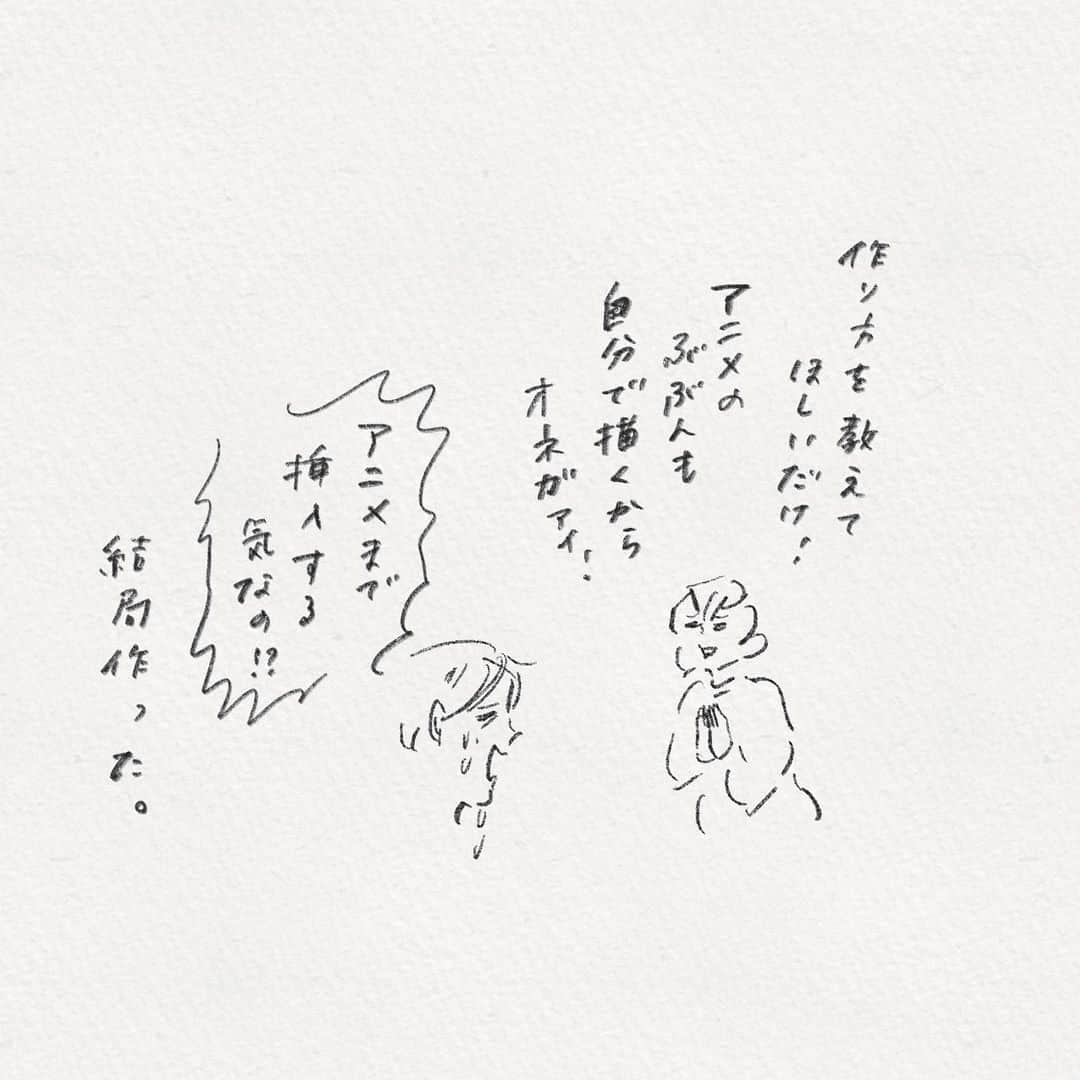 作り方を教えて
ほしいだけ!
アニメの
ぶぶんも
自分で描くから
オネガァイ!
アニメまで
挿入する
気なの!?
結局作った。